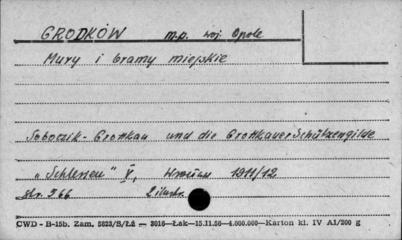 GRODKÓW m.p. woj. Opole
Mury i bramy miejskie
Soboczik - Grottkau und die Grottkauer Schützengilde
„Schlesien" V, Wrocław 1911/12
str. 966 2 ilustr.
CWD - B-15b. Zam. 5623/S/Łź — 3016—Łsk—15.11.56—4.000.000—Karton kl. IV A1/200 g